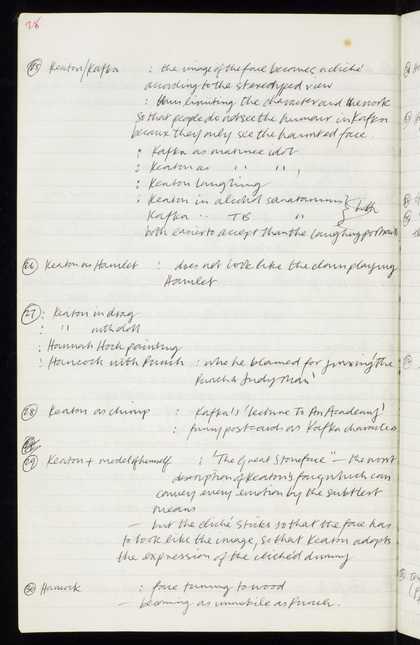 26
(25) Keaton/Kafka : the image of the face becomes a cliché
according to the stereotyped view
: thus limiting the character and the work
so that people do not see the humour in Kafka
because they only see the haunted face.
: Kafka as matinee idol
: Keaton as " " ,
: Keaton laughing
: Keaton in alcohol sanatorium } both
Kafka .. TB "
both easier to accept than the laughing portraits
(26) Keaton as Hamlet : does not look like the clown playing
Hamlet
(27) : Keaton in drag
: " with doll
: Hannah Hoch painting
: Hancock with Punch : who he blamed for jinxing 'the
Punch & Judy Man'
(28) Keaton as chimp : Kafka's 'Lecture to An Academy'
: funny postcards as Kafka characters
(29) Keaton + model of himself : 'The Great Stoneface" – the worst
description of Keaton's face which can
convey every emotion by the subtlest
means
– but the cliché sticks so that the face has
to look like the image, so that Keaton adopts
the expression of the clichéd dummy
(30) Hancock : face turning to wood
– becoming as immobile as Punch.